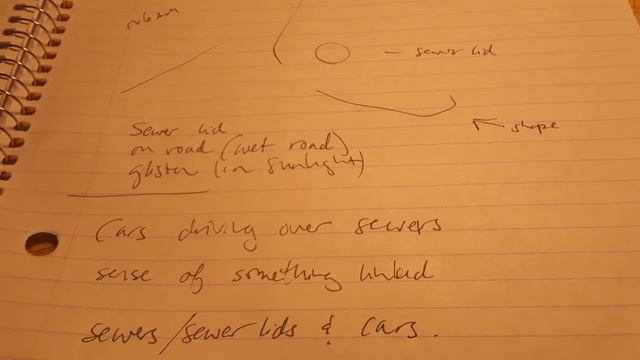 — sewer lid
shape
sewer lid
on road (wet road)
glisten (in sunlight)
Cars driving over sewers
sense of something linked
sewers/sewer lids & cars.